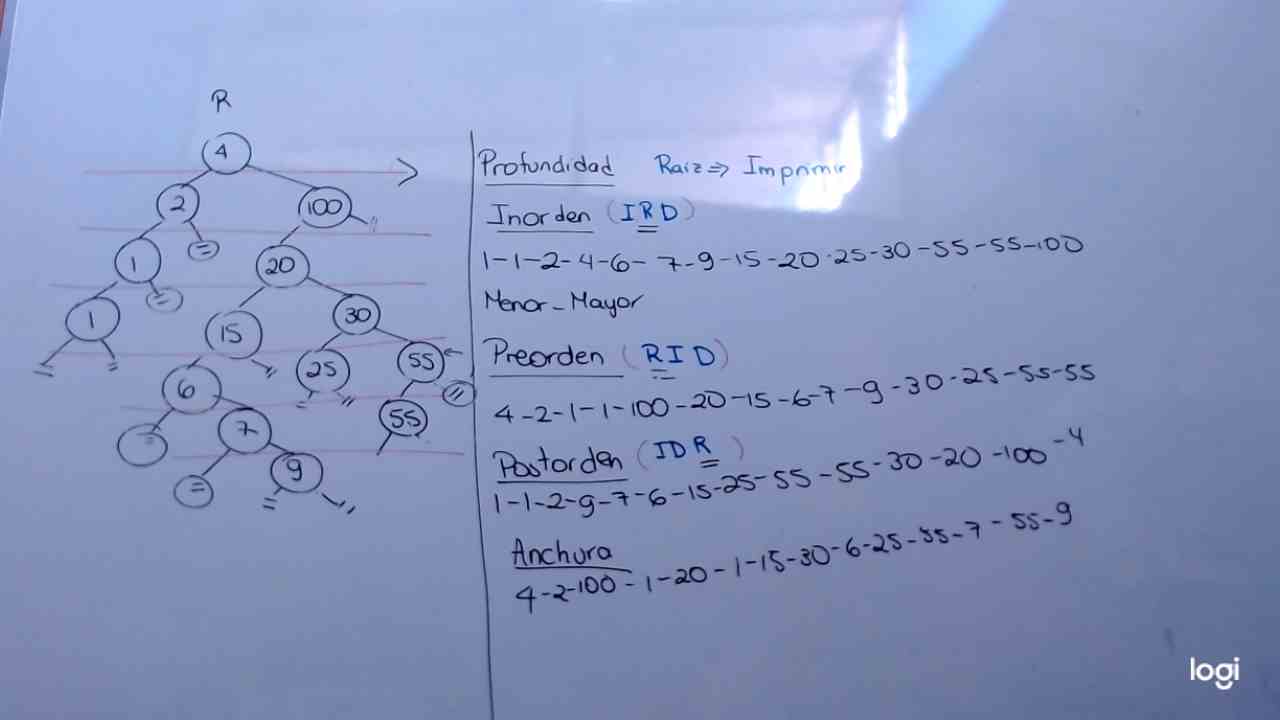 R
4
2
100
1
20
1
15
30
6
25
55
7
55
9
Profundidad Raíz => Imprimir
Inorden (IRD)
1-1-2-4-6-7-9-15-20-25-30-55-55-100
Menor-Mayor
Preorden (RID)
4-2-1-1-100-20-15-6-7-9-30-25-55-55
Postorden (IDR)
1-1-2-9-7-6-15-25-55-55-30-20-100-4
Anchura
4-2-100-1-20-1-15-30-6-25-55-7-55-9
logi